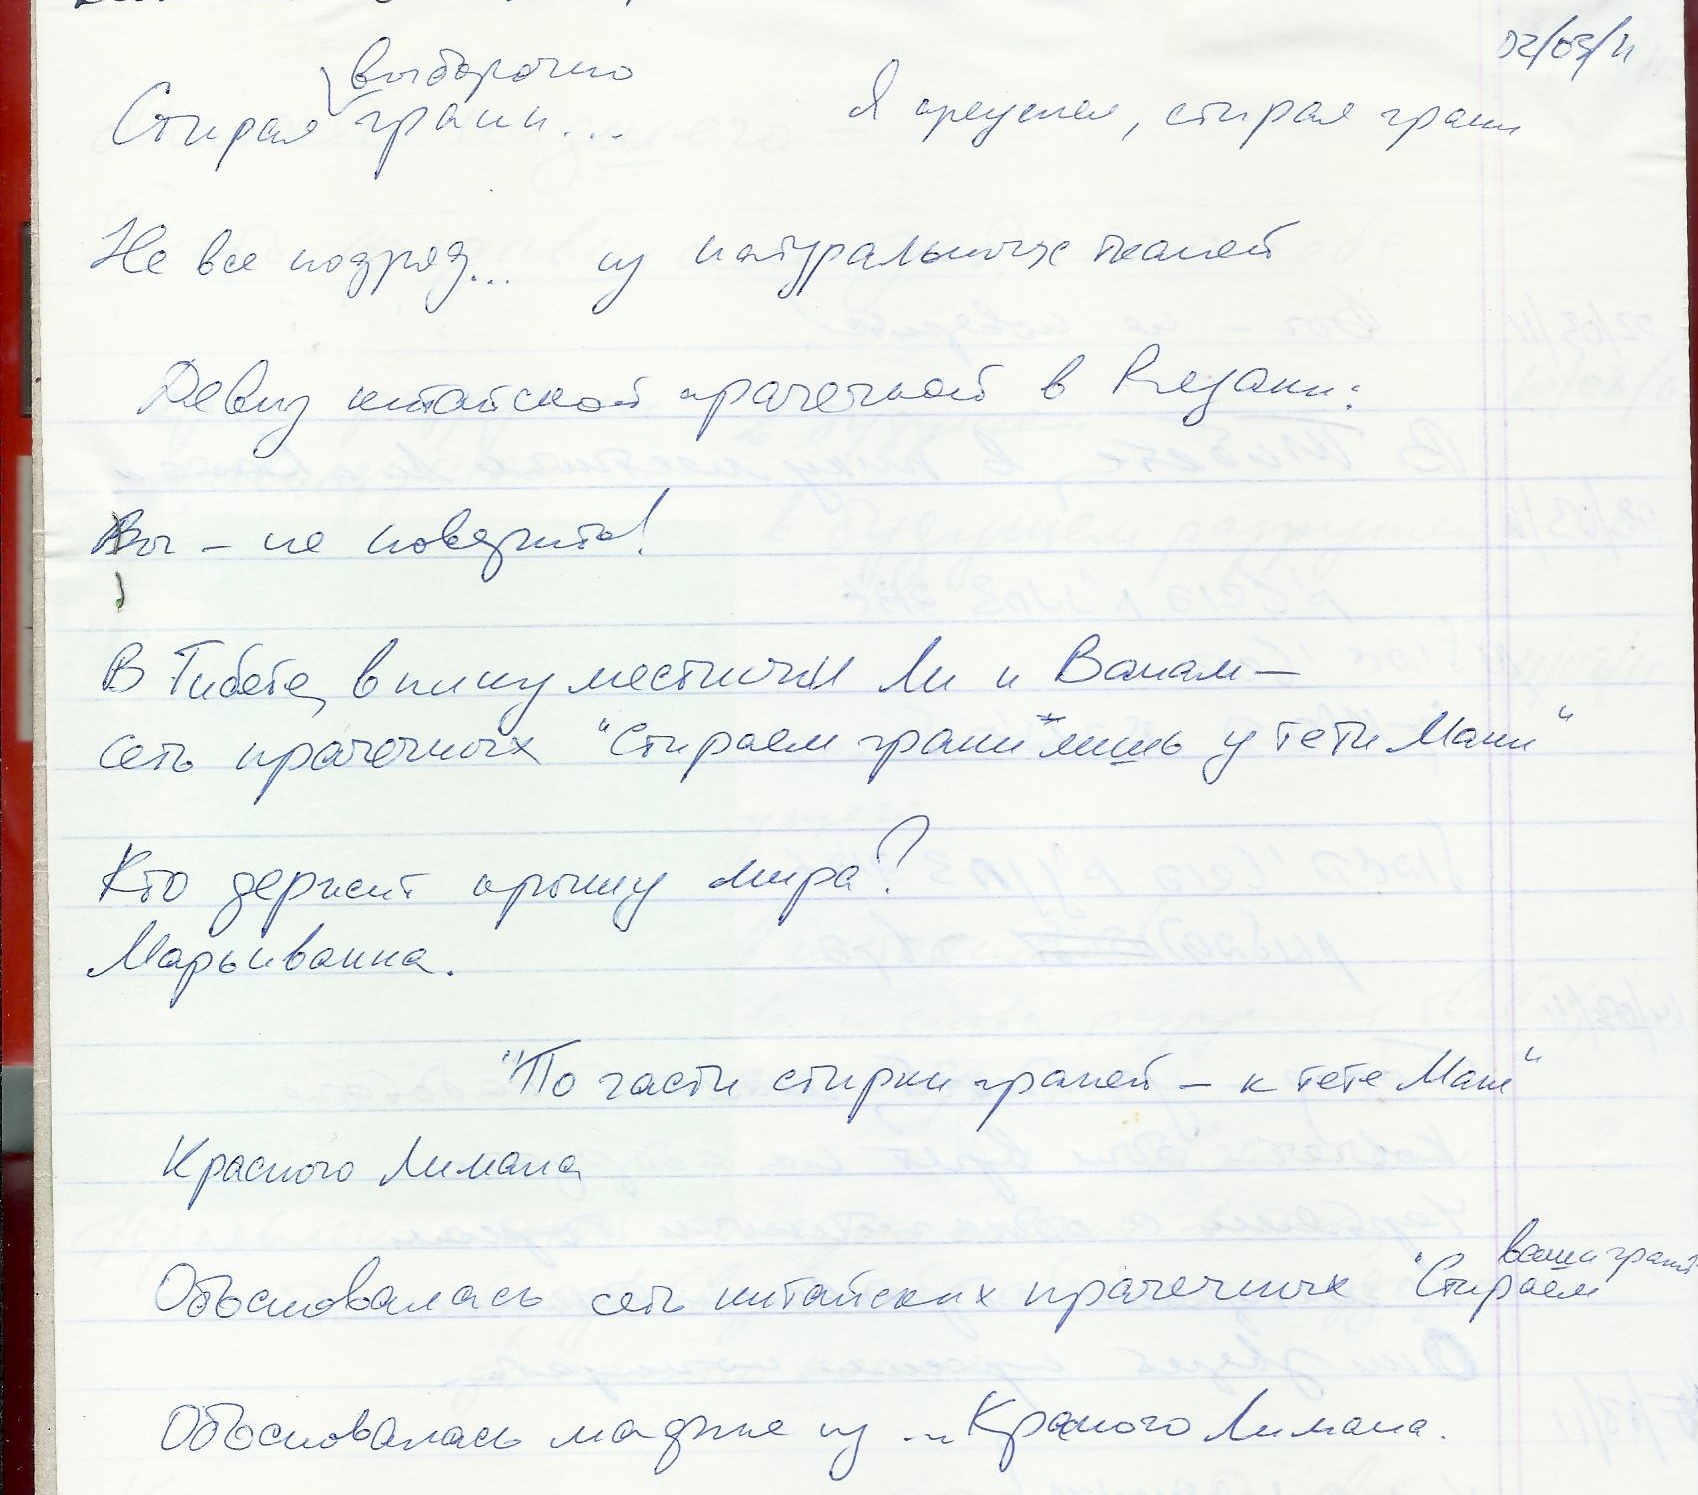 02/03/11
выборочно
Стирая грани... Я преуспел, стирая грани
Не все подряд... из натуральных тканей
Девиз китайской прачечной в Рязани:
Вы – не поверите!
В Тибете, в пику местным Ли и Ванам –
сеть прачечных "Стираем грани" лишь у тети Мани"
Кто держит крышу мира?
Марьиванна.
"По части стирки граней – к тете Мане"
Красного Лимана
ваши грани
Обосновалась сеть китайских прачечных "Стираем
Обосновалась мафия из ... Красного Лимана.